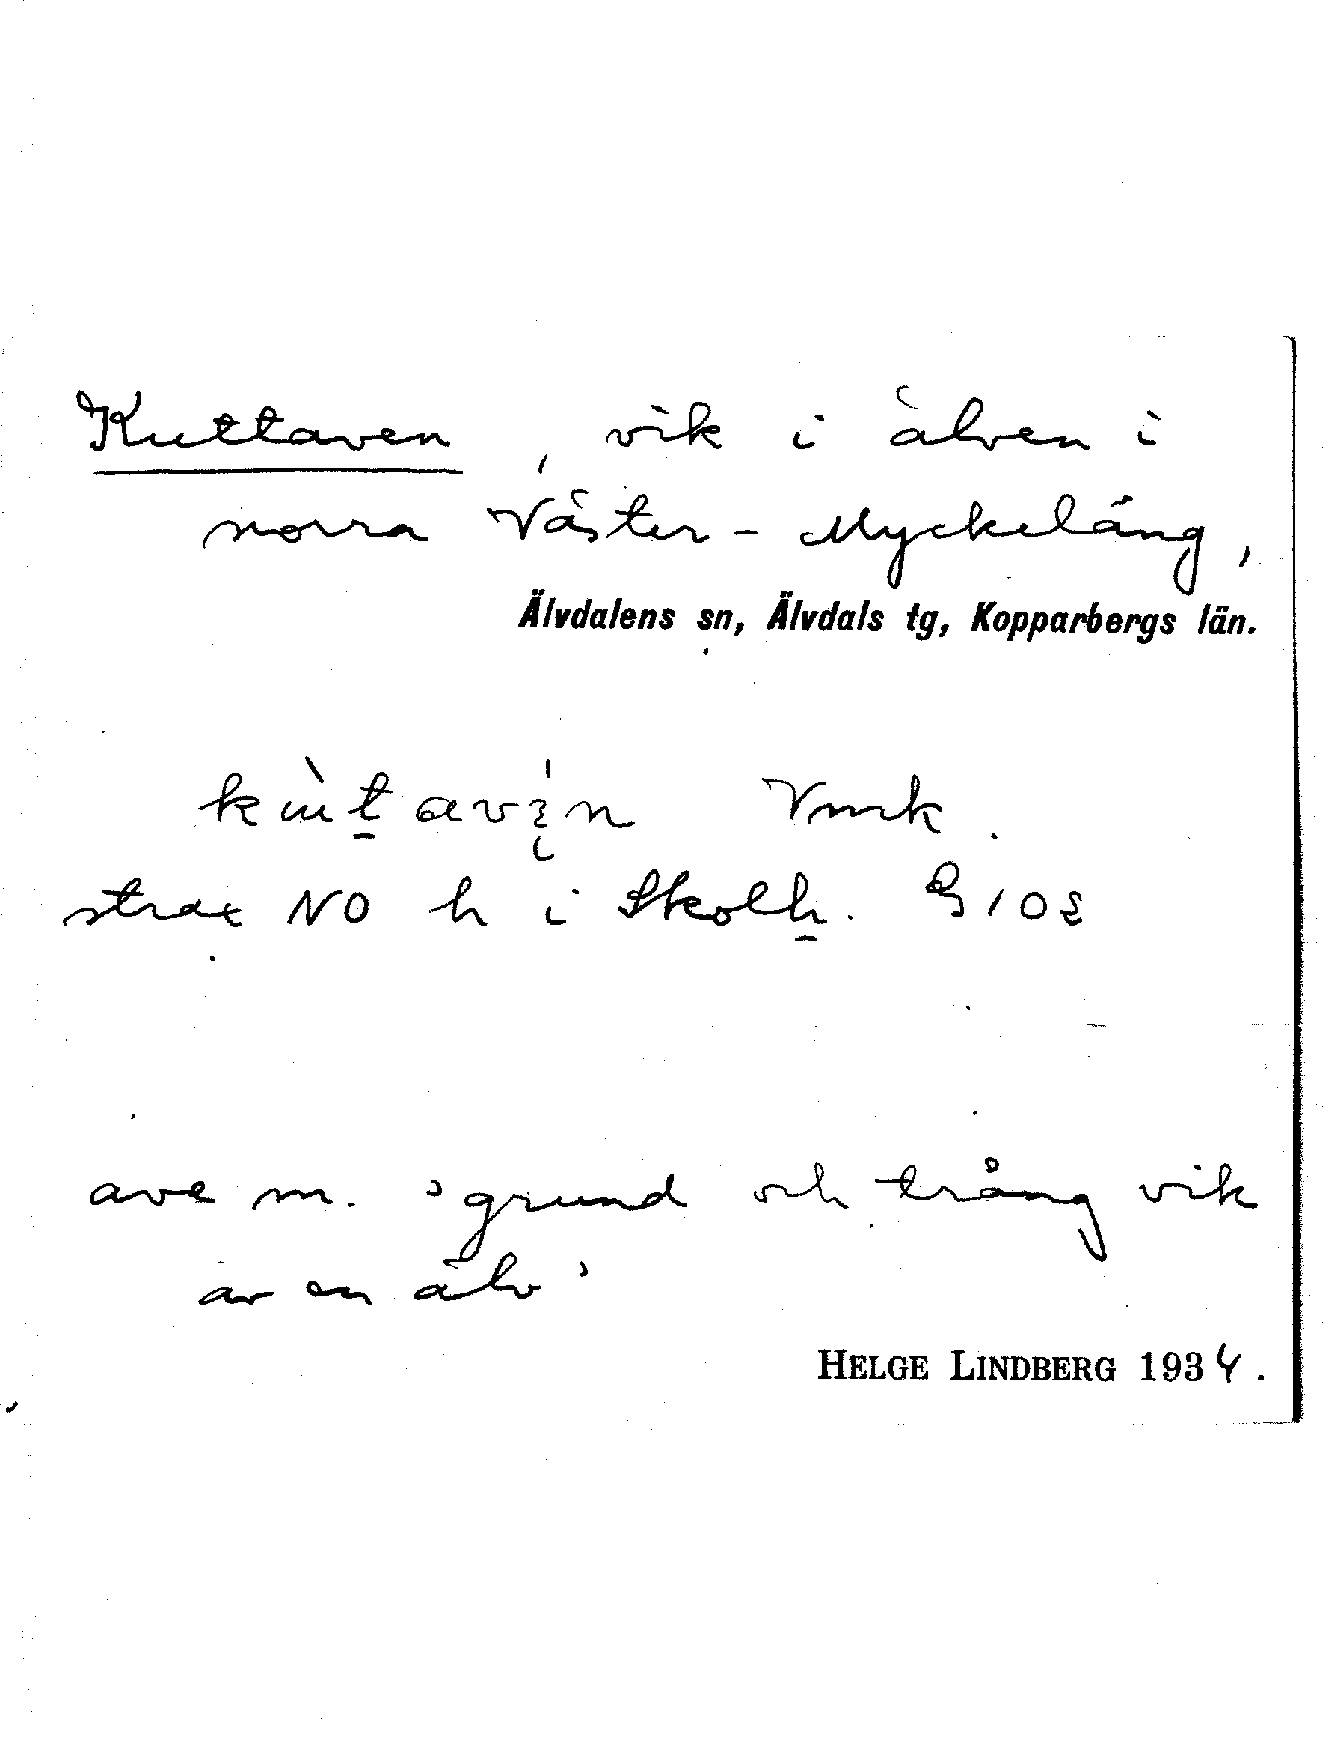 Kuttaven, vik i älven i
norra Väster-Myckeläng,
Älvdalens sn, Älvdals tg, Kopparbergs län.
Vmk.
strax NO h i Skolh.
ave m. 'grund och trång vik
av en älv'
HELGE LINDBERG 1934.